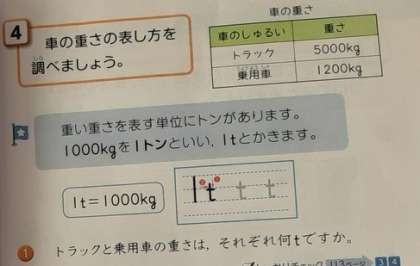 4
車の重さの表し方を
調べましょう。
車の重さ
車のしゅるい 重さ
トラック 5000kg
乗用車 1200kg
重い重さを表す単位にトンがあります。
1000kgを1トンといい、1tとかきます。
1t=1000kg
1t t t
1 トラックと乗用車の重さは、それぞれ何tですか。
113ページ 3 4